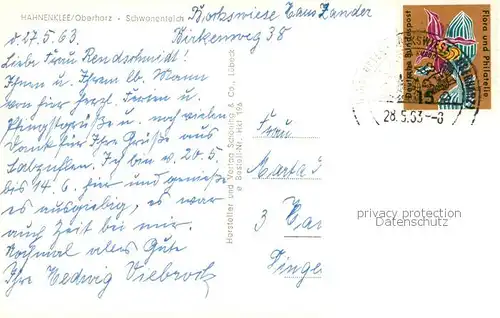 HAHNENKLEE/Oberharz - Schwanenteich
Bockswiese Haus Zander
d. 27.5.63. Birkenweg 38
Liebe Frau Rendschmidt!
Ihnen u. Ihrem lb. Mann
von hier herzl. Ferien u.
Pfingstgrüße u. noch vielen
Dank für Ihre Grüße aus
Salzuflen. Ich bin v. 20.5.
bis 14.6. hier und genieße
es ausgiebig, es war
auch Zeit bei mir.
Nochmal alles Gute
Ihre Hedwig Viebrock
Hersteller und Verlag Schöning & Co., Lübeck
Bestell-Nr. Hkl 196
Deutsche Bundespost
Flora und Philatelie
15
28.5.63-8
Frau
Marta
3 Han
privacy protection
Datenschutz